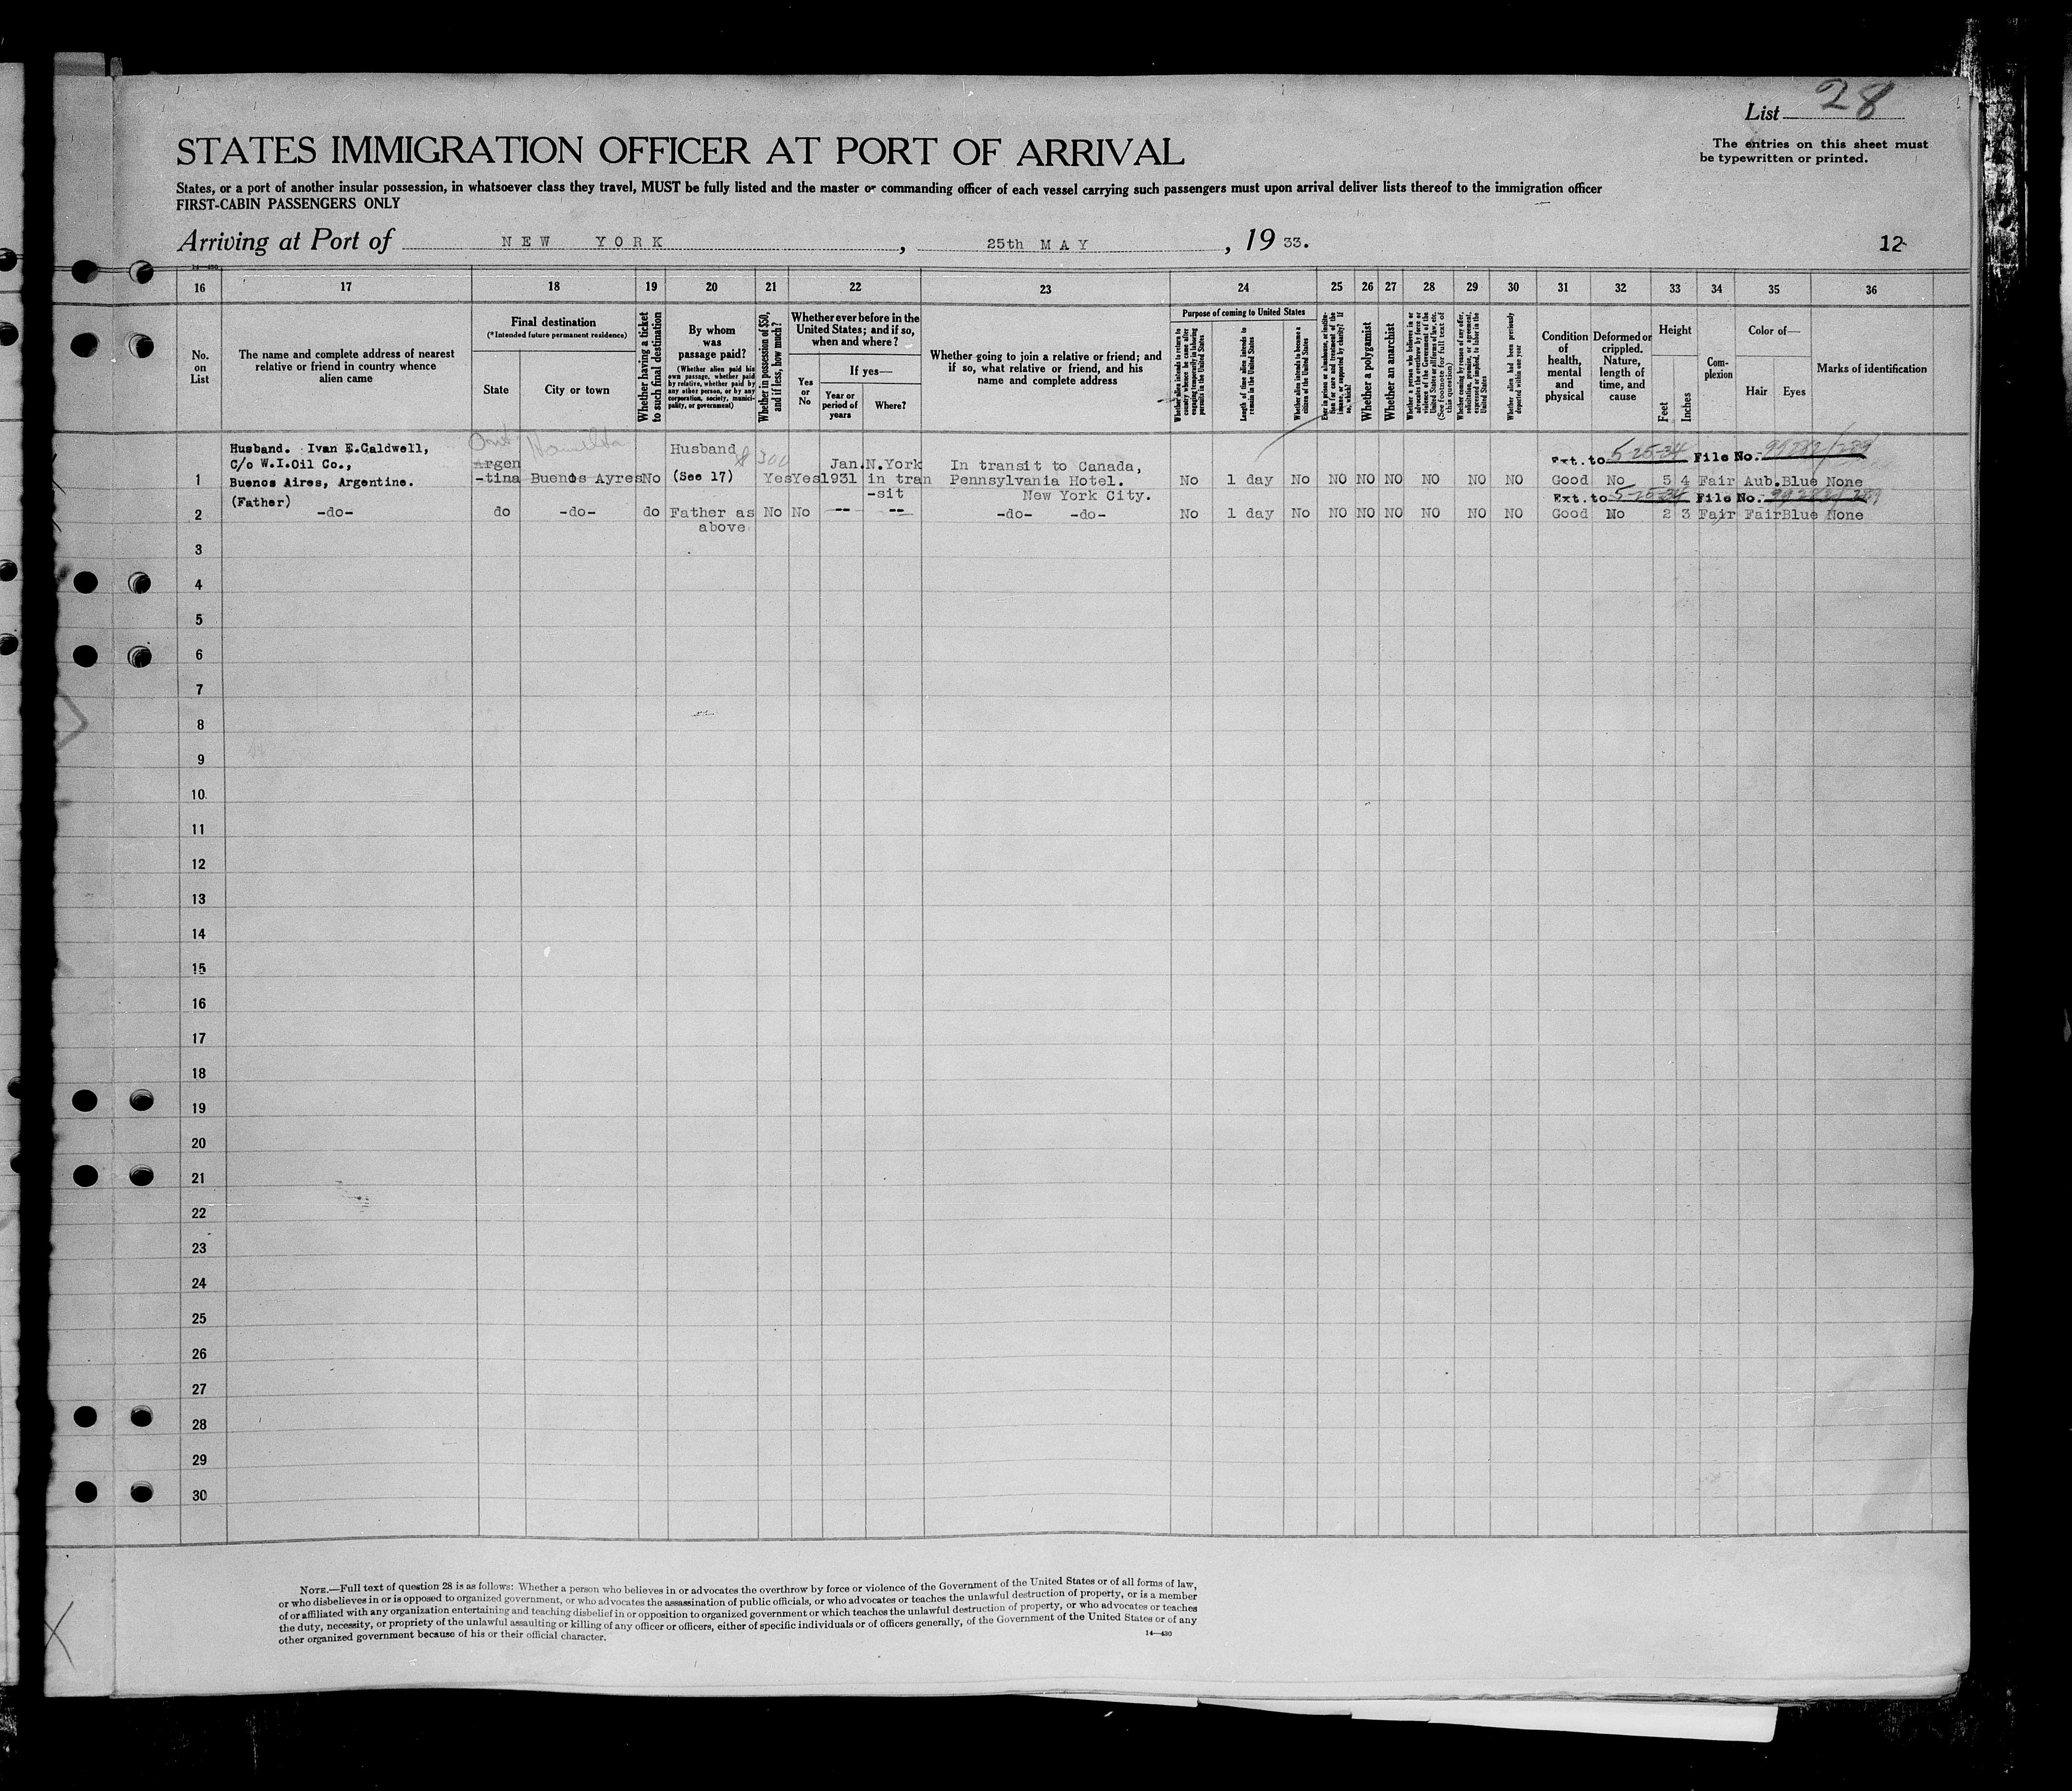 List 28
The entries on this sheet must
be typewritten or printed.
STATES IMMIGRATION OFFICER AT PORT OF ARRIVAL
States, or a port of another insular possession, in whatsoever class they travel, MUST be fully listed and the master or commanding officer of each vessel carrying such passengers must upon arrival deliver lists thereof to the immigration officer
FIRST-CABIN PASSENGERS ONLY
Arriving at Port of NEW YORK, 25th MAY, 1933.
12
14—430
16 17 18 19 20 21 22 23 24 25 26 27 28 29 30 31 32 33 34 35 36
No.
on
List
The name and complete address of nearest
relative or friend in country whence
alien came
Final destination
(*Intended future permanent residence)
State
City or town
Whether having a ticket
to such final destination
By whom
was
passage paid?
(Whether alien paid his
own passage, whether paid
by relative, whether paid by
any other person, or by any
corporation, society, munici-
pality, or government)
Whether in possession of $50,
and if less, how much?
Whether ever before in the
United States; and if so,
when and where?
Yes
or
No
If yes—
Year or
period of
years
Where?
Whether going to join a relative or friend; and
if so, what relative or friend, and his
name and complete address
Purpose of coming to United States
Whether alien intends to return to
country whence he came after
engaging temporarily in laboring
pursuits in the United States
Length of time alien intends to
remain in the United States
Whether alien intends to become a
citizen of the United States
Ever in prison or almshouse, or institu-
tion for care and treatment of the
insane, or supported by charity? If
so, which?
Whether a polygamist
Whether an anarchist
Whether a person who believes in or
advocates the overthrow by force or
violence of the Government of the
United States or all forms of law, etc.
(See footnote for full text of
this question)
Whether coming by reason of any offer,
solicitation, promise, or agreement,
expressed or implied, to labor in the
United States
Whether alien had been previously
deported within one year
Condition
of
health,
mental
and
physical
Deformed or
crippled.
Nature,
length of
time, and
cause
Height
Feet
Inches
Com-
plexion
Color of—
Hair
Eyes
Marks of identification
Husband. Ivan E.Caldwell,
C/o W.I.Oil Co.,
Buenos Aires, Argentine.
(Father)
Ont Hamilton
Argen
-tina Buenos Ayres No
Husband
(See 17)
$300
Yes Yes
Jan.
1931
N.York
in tran
-sit
In transit to Canada,
Pennsylvania Hotel.
New York City.
No 1 day No NO NO NO NO NO NO
Ext. to 5-25-34 File No.
Good No 5 4 Fair Aub. Blue None
1
2
-do- do -do- do Father as
above
No No -- --
-do- -do-
No 1 day No NO NO NO NO NO NO
Ext. to 5-25-34 File No.
Good No 2 3 Fair Fair Blue None
3
4
5
6
7
8
9
10
11
12
13
14
15
16
17
18
19
20
21
22
23
24
25
26
27
28
29
30
NOTE.—Full text of question 28 is as follows: Whether a person who believes in or advocates the overthrow by force or violence of the Government of the United States or of all forms of law,
or who disbelieves in or is opposed to organized government, or who advocates the assassination of public officials, or who advocates or teaches the unlawful destruction of property, or is a member
of or affiliated with any organization entertaining and teaching disbelief in or opposition to organized government or which teaches the unlawful destruction of property, or who advocates or teaches
the duty, necessity, or propriety of the unlawful assaulting or killing of any officer or officers, either of specific individuals or of officers generally, of the Government of the United States or of any
other organized government because of his or their official character.
14—430